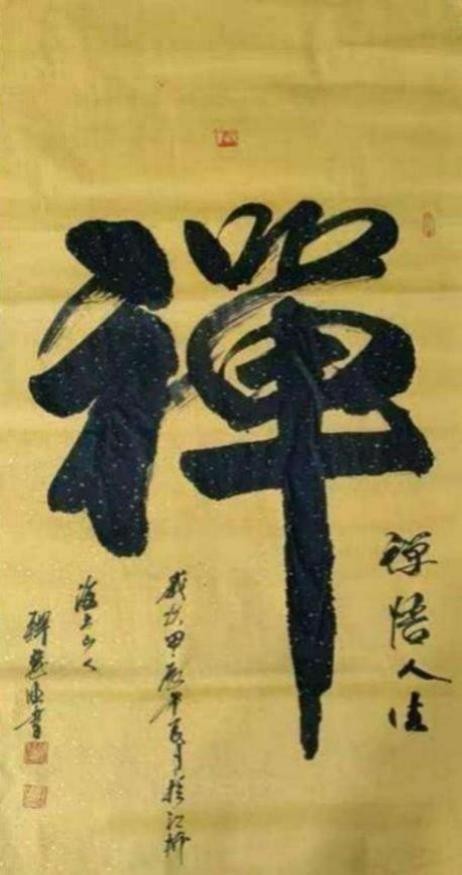 禪
禪悟人生
歲次甲辰年夏月於江
海上山人
書